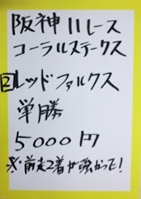 阪神11レース
コーラルステークス
②レッドファルクス
単勝
5000円
※前走2着が強かった!